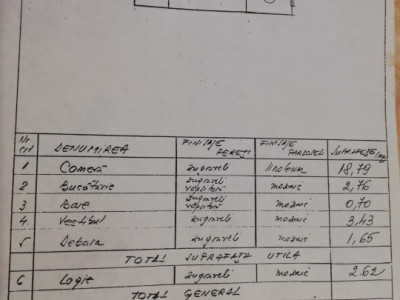 Nr. crt DENUMIREA FINISAJE PEREȚI FINISAJE PARDOSELI SUPRAFEȚE
1 Cameră zugrăveli linoleum 18,79
2 Bucătărie zugrăveli vopsitorii mozaic 2,76
3 Baie zugrăveli vopsitorii mozaic 0,70
4. Vestibul zugrăveli mozaic 3,43
5 Debara zugrăveli mozaic 1,65
TOTAL SUPRAFAȚA UTILA
6 Logie zugrăveli mozaic 2.62
TOTAL GENERAL